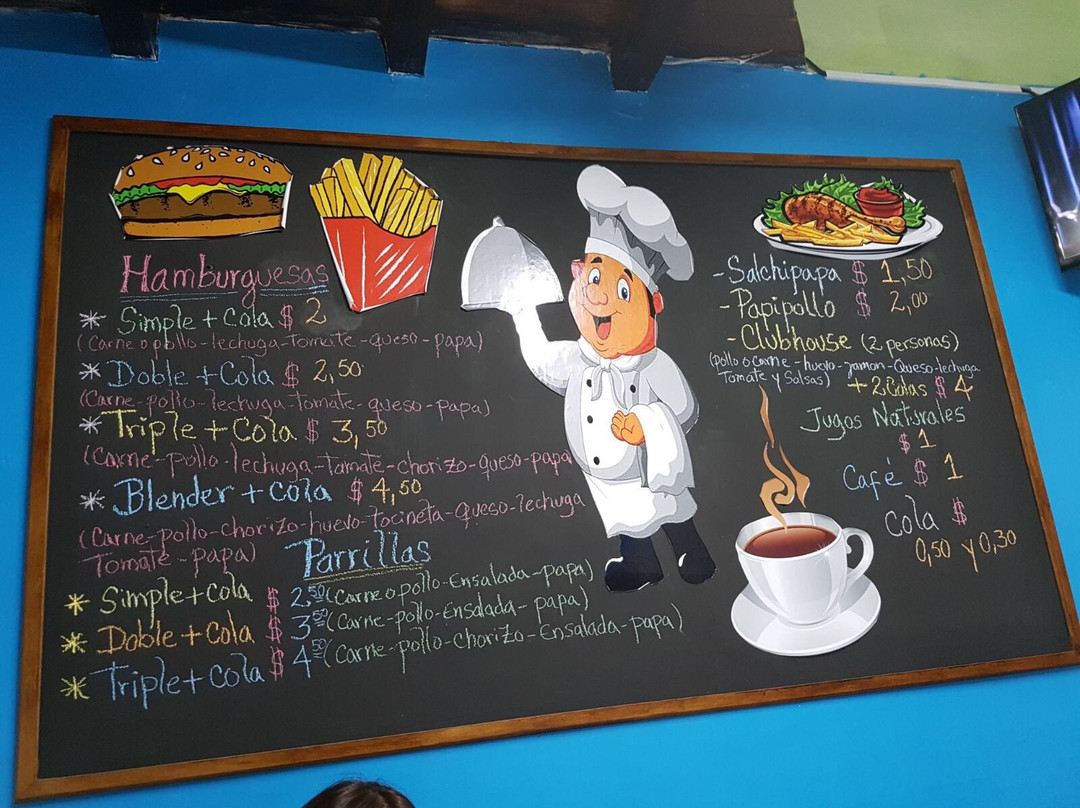 Hamburguesas
* Simple + Cola $ 2
(Carne o pollo - lechuga - Tomate - queso - papa)
* Doble + Cola $ 2,50
(Carne - pollo - lechuga - tomate - queso - papa)
* Triple + Cola $ 3,50
(Carne - pollo - lechuga - Tamate - chorizo - queso - papa
* Blender + cola $ 4,50
(Carne - pollo - chorizo - huevo - Tocineta - queso - lechuga
Tomate - papa)
Parrillas
* Simple + cola $ 2,50 (Carne o pollo - Ensalada - papa)
* Doble + Cola $ 3,50 (Carne - pollo - Ensalada - papa)
* Triple + Cola $ 4,50 (Carne - pollo - Chorizo - Ensalada - papa)
- Salchipapa $ 1,50
- Papipollo $ 2,00
- Clubhouse (2 personas)
(Pollo o Carne - huevo - jamon - Queso - lechuga
Tomate y Salsas) + 2 Colas $ 4
Jugos Naturales
$ 1
Café $ 1
Cola $
0,50 y 0,30